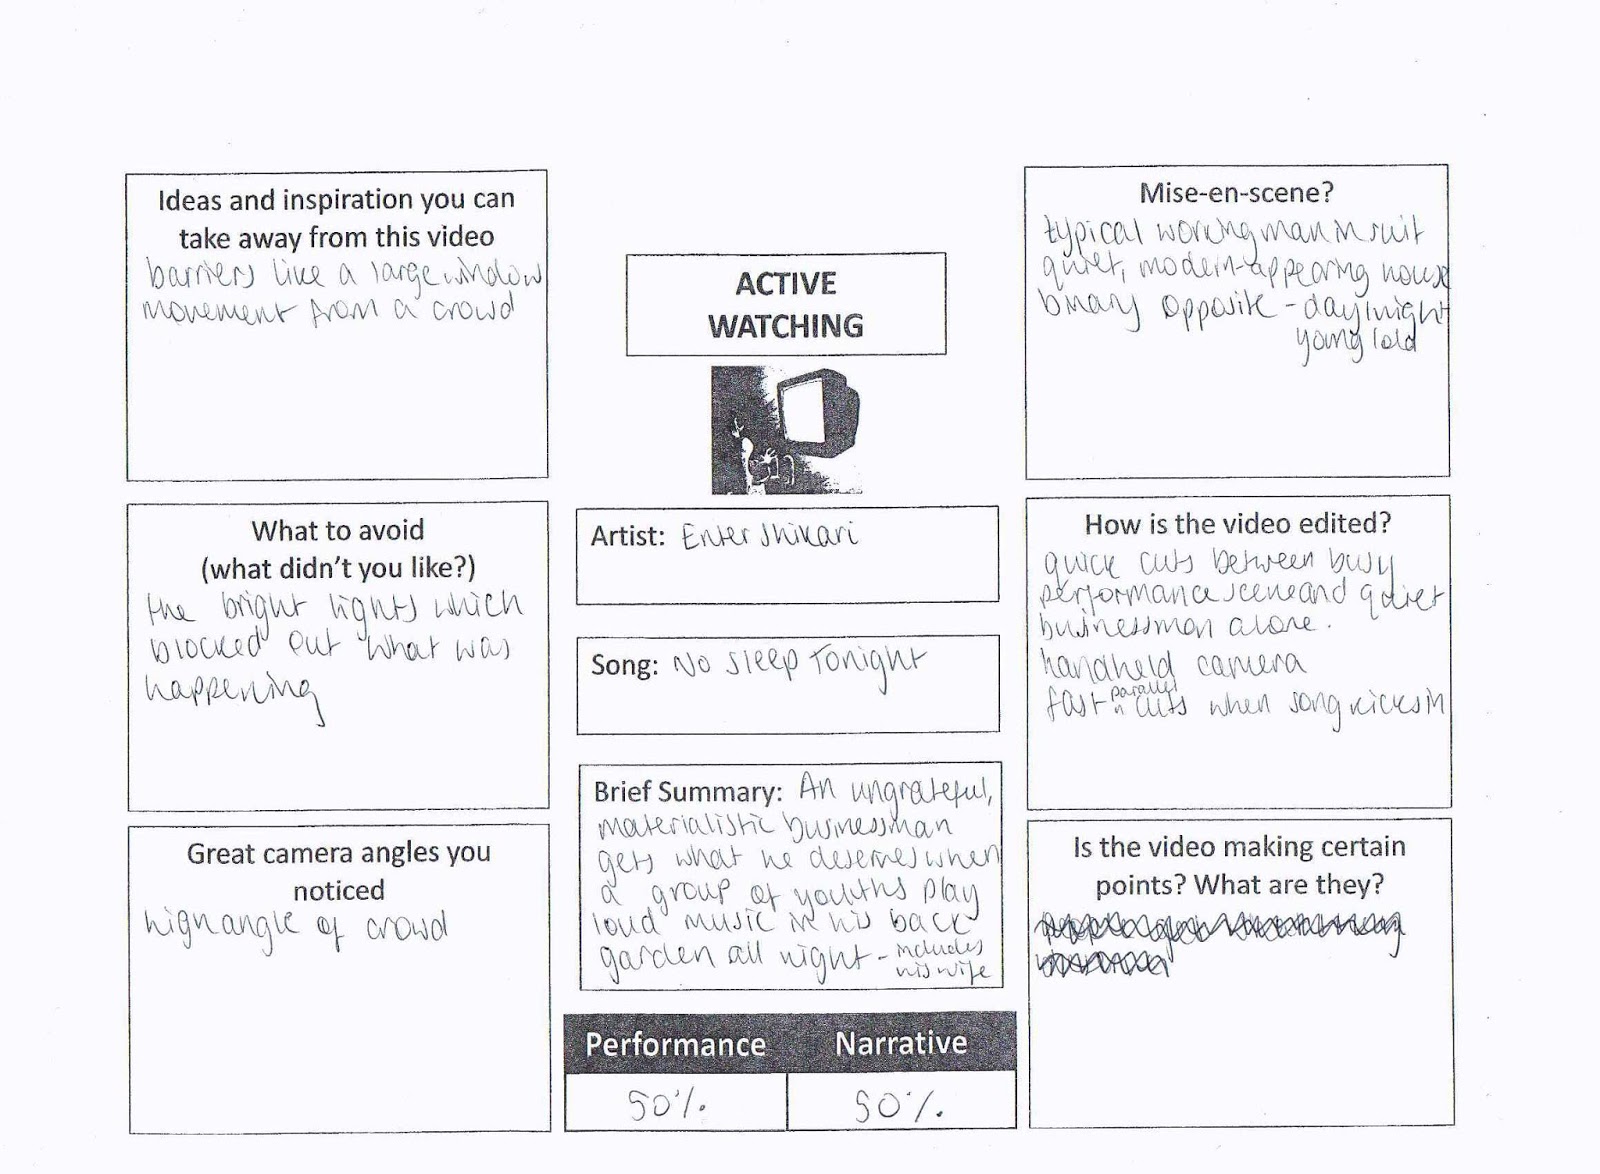 Ideas and inspiration you can
take away from this video
barriers like a large window
movement from a crowd
What to avoid
(what didn't you like?)
the bright lights which
blocked out what was
happening
Great camera angles you
noticed
high angle of crowd
ACTIVE
WATCHING
Artist: Enter Shikari
Song: No Sleep Tonight
Brief Summary: An ungrateful,
materialistic businessman
gets what he deserves when
a group of youths play
loud music in his back
garden all night - includes
his wife
Performance Narrative
50% 50%
Mise-en-scene?
typical working man in suit
quiet, modern-appearing house
binary opposite - day/night
young/old
How is the video edited?
quick cuts between busy
performance scene and quiet
businessman alone.
handheld camera
fast parallel cuts when song kicks in
Is the video making certain
points? What are they?